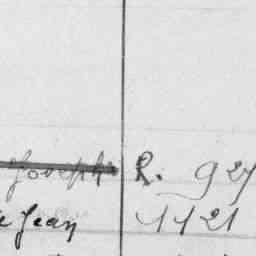 Joseph R. 927
Jean 1121